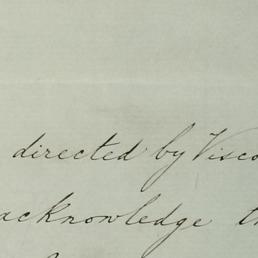 directed by Visco
acknowledge th